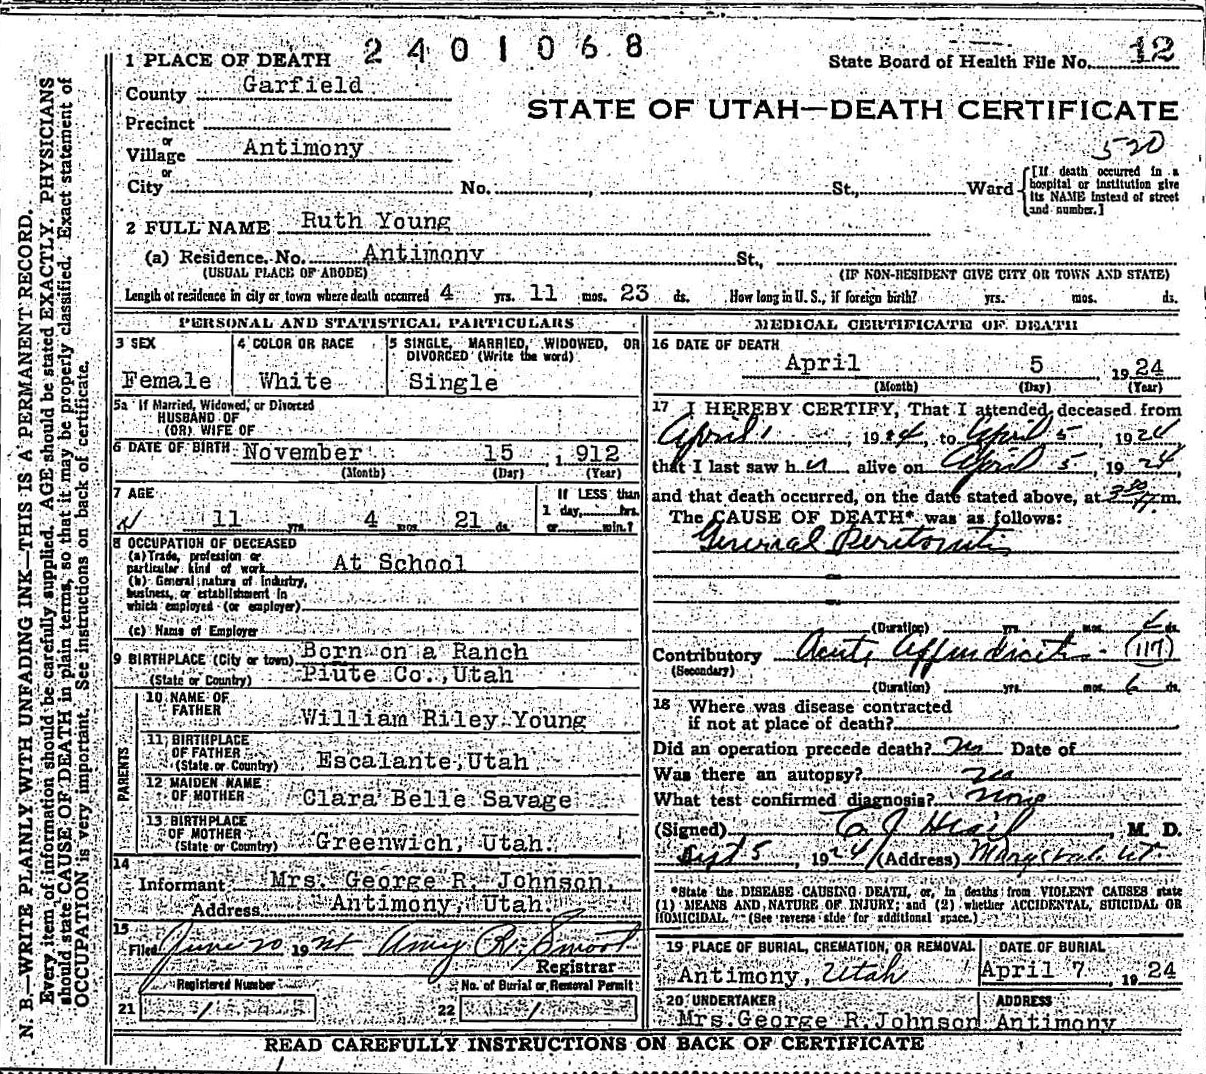 N. B.—WRITE PLAINLY WITH UNFADING INK—THIS IS A PERMANENT RECORD.
Every item of information should be carefully supplied. AGE should be stated EXACTLY. PHYSICIANS
should state CAUSE OF DEATH in plain terms, so that it may be properly classified. Exact statement of
OCCUPATION is very important. See instructions on back of certificate.
2401068
1 PLACE OF DEATH
State Board of Health File No. 12
County Garfield
STATE OF UTAH—DEATH CERTIFICATE
Precinct
or
Village Antimony
520
or
City No. , St., Ward
[If death occurred in a
hospital or institution give
its NAME instead of street
and number.]
2 FULL NAME Ruth Young
(a) Residence. No. Antimony St.,
(USUAL PLACE OF ABODE) (IF NON-RESIDENT GIVE CITY OR TOWN AND STATE)
Length of residence in city or town where death occurred 4 yrs. 11 mos. 23 ds. How long in U. S., if foreign birth? yrs. mos. ds.
PERSONAL AND STATISTICAL PARTICULARS
3 SEX
Female
4 COLOR OR RACE
White
5 SINGLE, MARRIED, WIDOWED, OR
DIVORCED (Write the word)
Single
5a If Married, Widowed, or Divorced
HUSBAND OF
(OR) WIFE OF
6 DATE OF BIRTH November 15 , 1912
(Month) (Day) (Year)
7 AGE
11 yrs. 4 mos. 21 ds.
If LESS than
1 day, hrs.
or min.?
8 OCCUPATION OF DECEASED
(a) Trade, profession or
particular kind of work At School
(b) General nature of industry,
business, or establishment in
which employed (or employer)
(c) Name of Employer
9 BIRTHPLACE (City or town) Born on a Ranch
(State or Country) Piute Co., Utah
PARENTS
10 NAME OF
FATHER William Riley Young
11 BIRTHPLACE
OF FATHER
(State or Country) Escalante, Utah
12 MAIDEN NAME
OF MOTHER Clara Belle Savage
13 BIRTHPLACE
OF MOTHER
(State or Country) Greenwich, Utah.
14
Informant Mrs. George R. Johnson,
Address Antimony, Utah
15
Filed June 20 1924 Amy R. Smoot
Registrar
Registered Number No. of Burial or Removal Permit
21 22
MEDICAL CERTIFICATE OF DEATH
16 DATE OF DEATH
April 5 1924
(Month) (Day) (Year)
17 I HEREBY CERTIFY, That I attended deceased from
April 1 , 1924, to April 5 , 1924
that I last saw her alive on April 5 , 1924,
and that death occurred, on the date stated above, at 3 30 m.
The CAUSE OF DEATH* was as follows:
General Peritonitis
(Duration) yrs. mos. ds.
Contributory Acute Appendicitis. (117)
(Secondary)
(Duration) yrs. mos. 6 ds.
18 Where was disease contracted
if not at place of death?
Did an operation precede death? No Date of
Was there an autopsy? No
What test confirmed diagnosis? None
(Signed) , M. D.
Sept 5 , 1924 (Address) Marysvale Ut.
*State the DISEASE CAUSING DEATH, or, in deaths from VIOLENT CAUSES state
(1) MEANS AND NATURE OF INJURY; and (2) whether ACCIDENTAL, SUICIDAL OR
HOMICIDAL. (See reverse side for additional space.)
19 PLACE OF BURIAL, CREMATION, OR REMOVAL
Antimony, Utah
DATE OF BURIAL
April 7 , 1924
20 UNDERTAKER
Mrs. George R. Johnson
ADDRESS
Antimony
READ CAREFULLY INSTRUCTIONS ON BACK OF CERTIFICATE